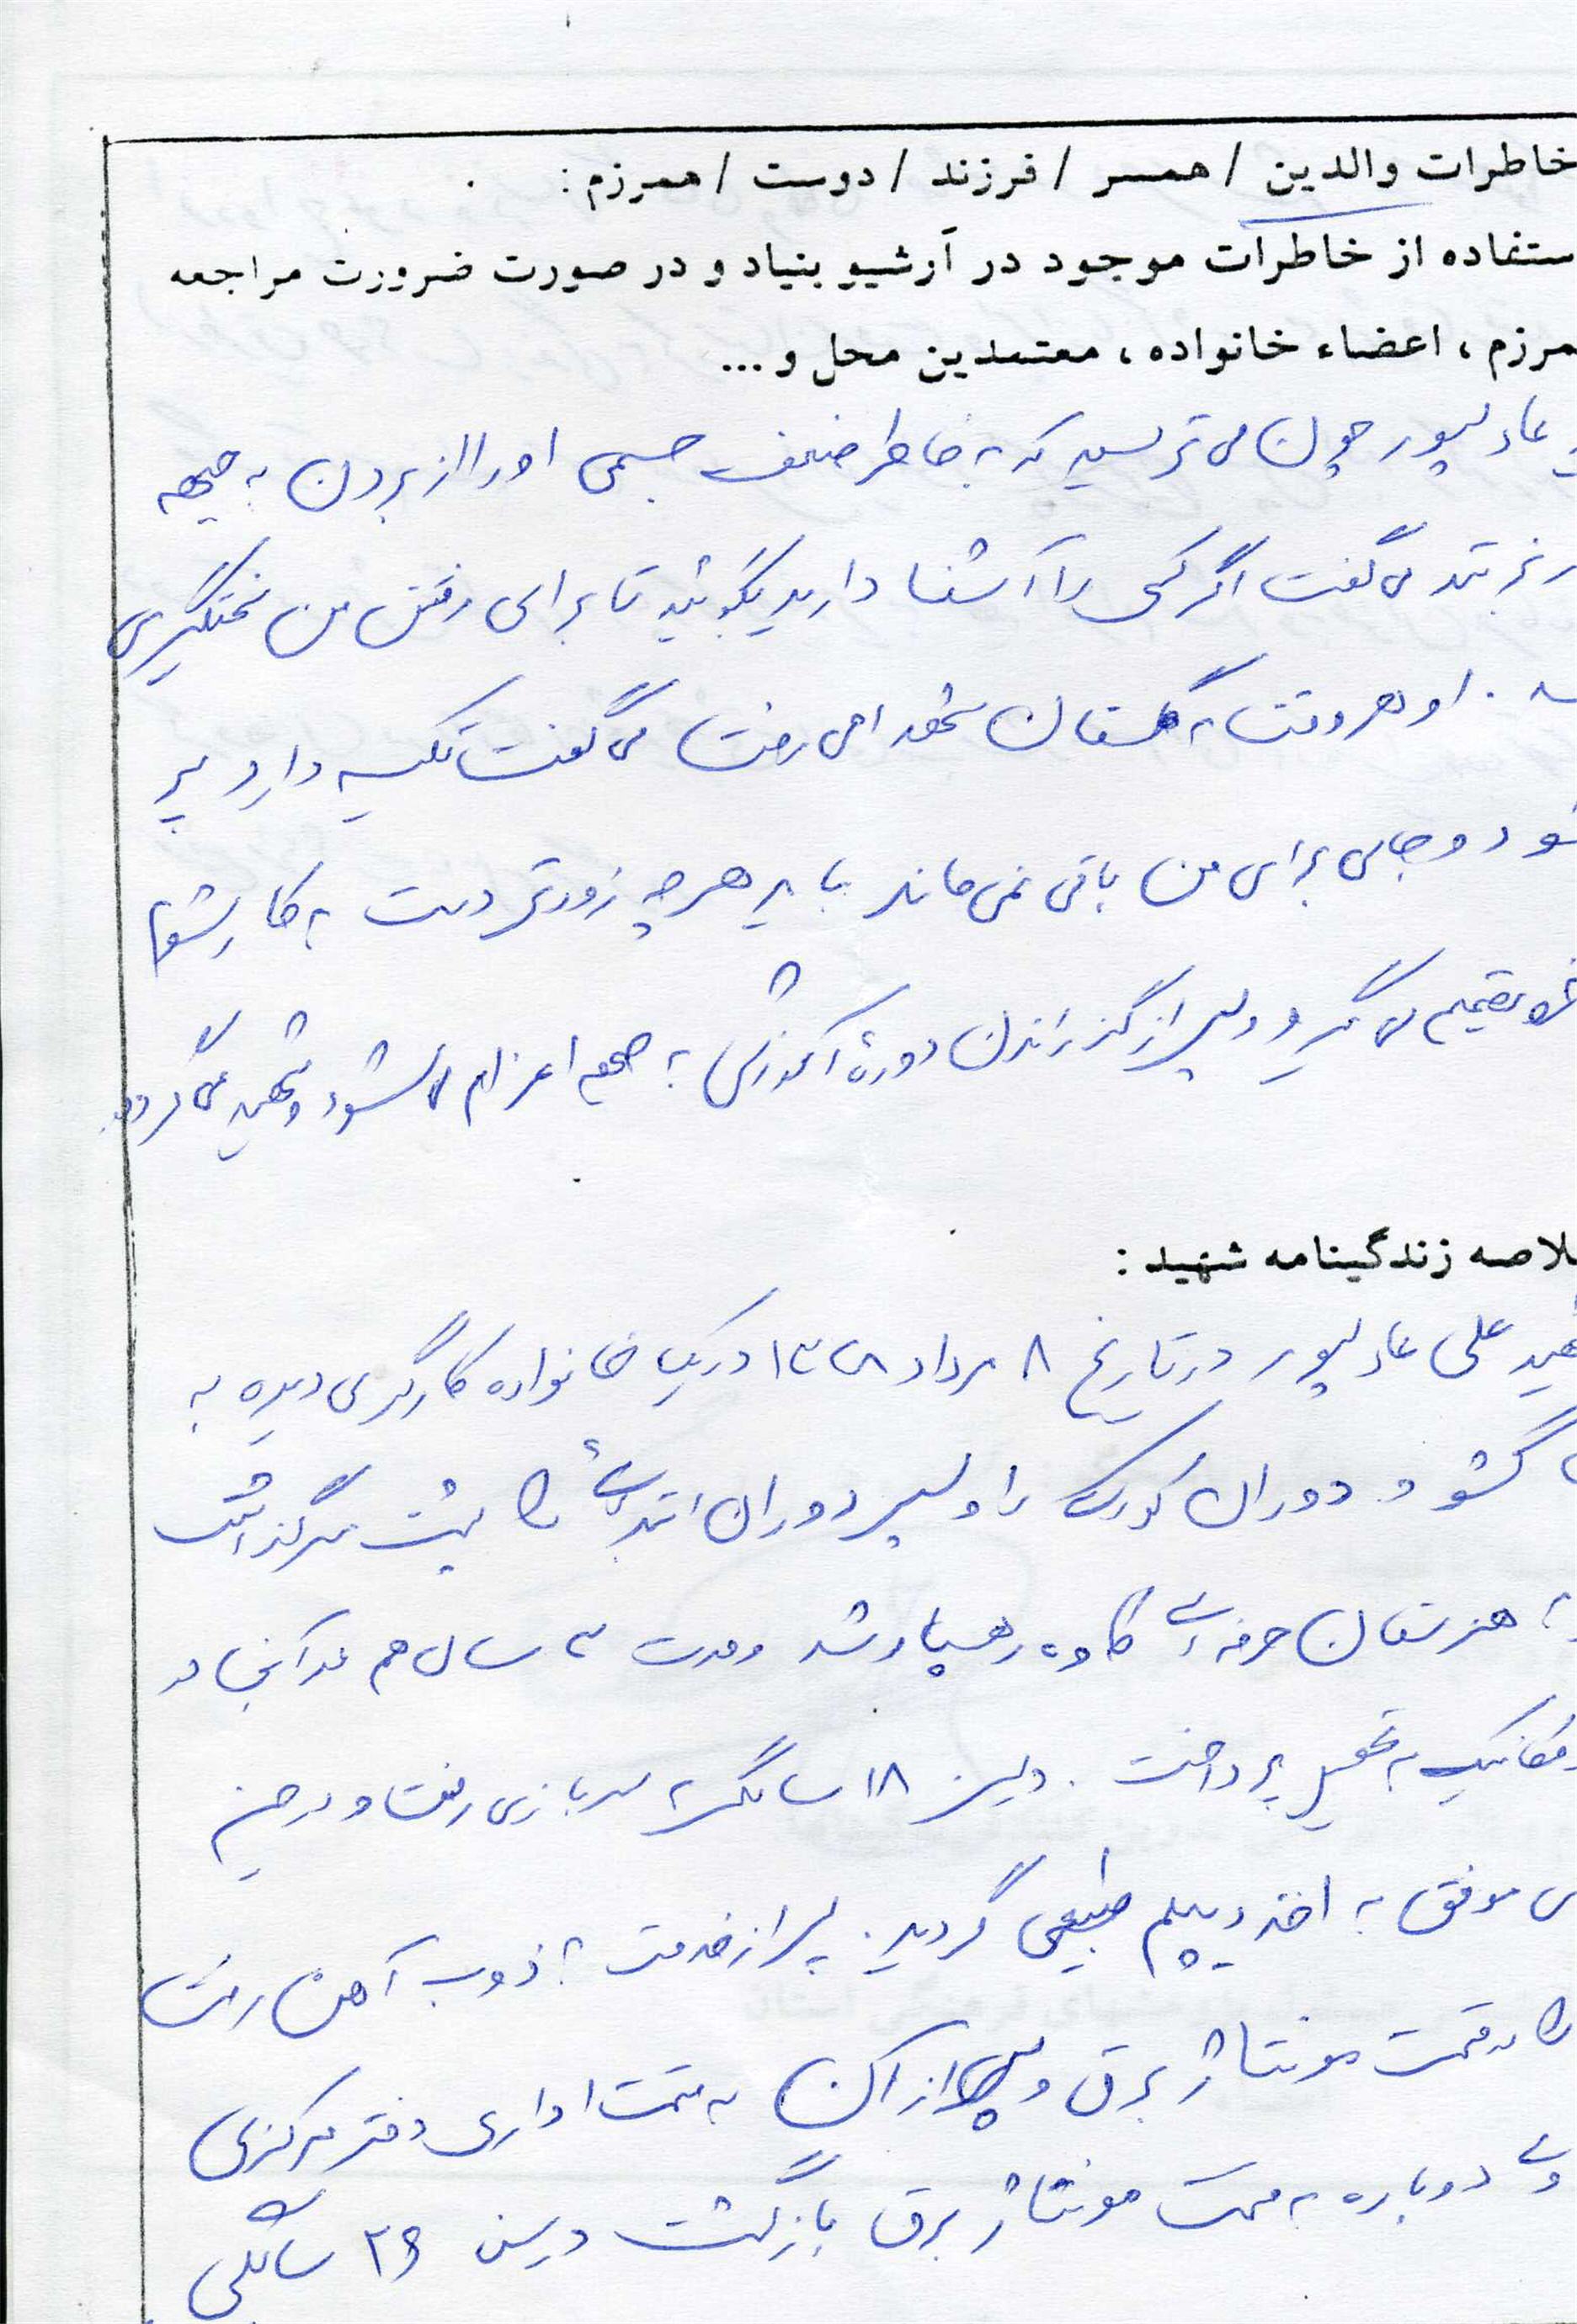 خاطرات والدین / همسر / فرزند / دوست / همرزم :
ستفاده از خاطرات موجود در آرشیو بنیاد و در صورت ضرورت مراجعه
مرزم ، اعضاء خانواده ، معتمدین محل و ...
عادلپور چون می ترسید که به خاطر ضعف جسمی او را از بردن به جبهه
می گفت اگر کسی را آشنا دارید بگوئید تا برای رفتن من سختگیری
او هر وقت به گلستان شهدا می رفت می گفت تکیه دارد پر
شود و جایی برای من باقی نمی ماند باید هر چه زودتر دست به کار شوم
تصمیم می گیرد و پس از گذراندن دوره آموزشی به جبهه اعزام می شود و شهید می گردد.
لاصه زندگینامه شهید :
هید علی عادلپور در تاریخ ۸ مرداد ۱۳۲۸ در یک خانواده کارگری دیده به
گشود دوران کودکی را و سپس دوران ابتدایی را پشت سر گذاشت
به هنرستان حرفه ای کاوه رهسپار شد و مدت ۳ سال هم در آنجا در
مکانیک به تحصیل پرداخت . در سن ۱۸ سالگی به سربازی رفت و در حین
موفق به اخذ دیپلم طبیعی گردید . پس از خدمت به ذوب آهن رفت
را در قسمت مونتاژ برق و پس از آن به قسمت اداری دفتر مرکزی
ولی دوباره به قسمت مونتاژ برق بازگشت در سن ۲۶ سالگی